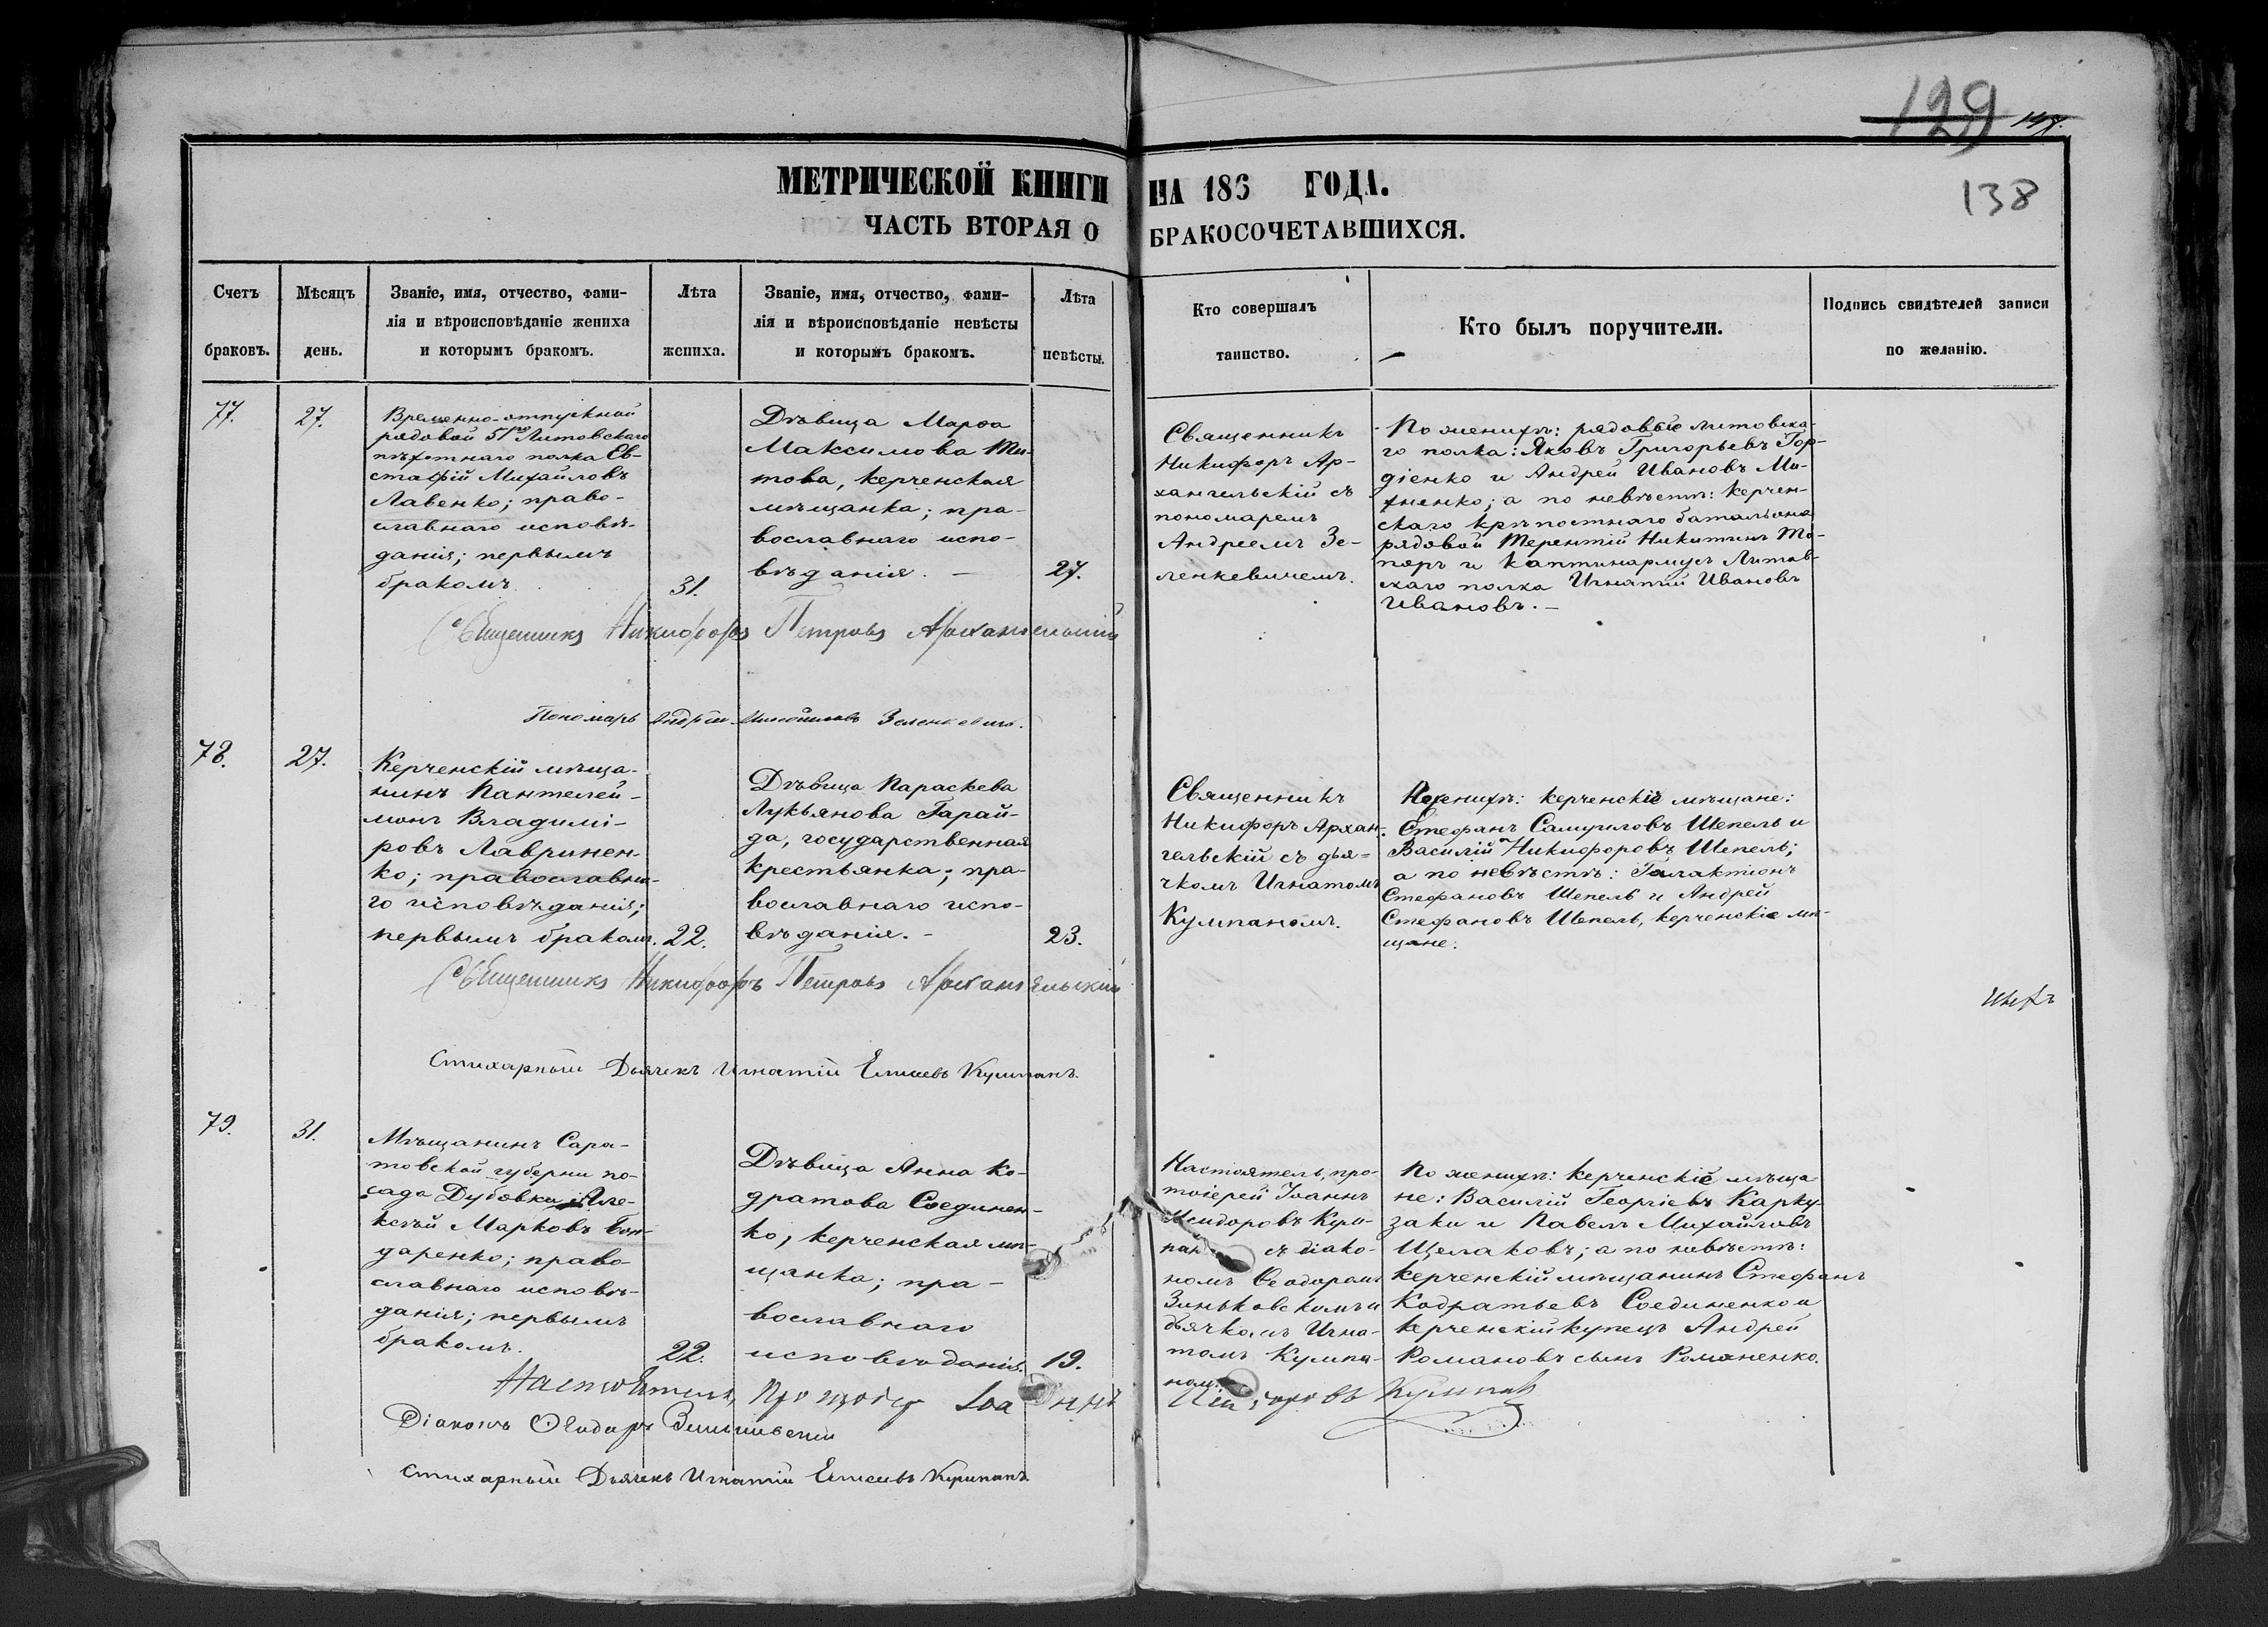 129
138
МЕТРИЧЕСКОЙ КНИГИ НА 186 ГОДА.
ЧАСТЬ ВТОРАЯ О БРАКОСОЧЕТАВШИХСЯ.
Счетъ
браковъ.
Мѣсяцъ
день.
Званіе, имя, отчество, фами-
лія и вѣроисповѣданіе жениха
и которымъ бракомъ.
Лѣта
жениха.
Званіе, имя, отчество, фами-
лія и вѣроисповѣданіе невѣсты
и которымъ бракомъ.
Лѣта
невѣсты.
Кто совершалъ
таинство.
Кто былъ поручители.
Подпись свидѣтелей записи
по желанію.
77.
27.
Временно-отпускной
рядовой 51го Литовскаго
пѣхотнаго полка Ев-
стафій Михайловъ
Лавенко; право-
славнаго исповѣ-
данія; первымъ
бракомъ.
31.
Дѣвица Марѳа
Максимова Ти-
това, керченская
мѣщанка; пра-
вославнаго испо-
вѣданія. —
27.
Священникъ
Никифоръ Ар-
хангельскій съ
пономаремъ
Андреемъ Зе-
ленкевичемъ.
По женихѣ: рядовые литовска-
го полка: Яковъ Григорьевъ Гор-
діенко и Андрей Ивановъ Ми-
хненко; а по невѣстѣ: керчен-
скаго крѣпостнаго баталіона
рядовой Терентій Никитинъ То-
поръ и каптинармусъ Литов-
скаго полка Игнатій Ивановъ
Ивановъ. —
Священникъ Никифоръ Петровъ Архангельскій
Пономарь Андрей Зеленкевичъ.
78.
27.
Керченскій мѣща-
нинъ Пантелей-
монъ Владимі-
ровъ Лавринен-
ко; православна-
го исповѣданія;
первымъ бракомъ.
22.
Дѣвица Параскева
Лукьянова Гарай-
да, государственная
крестьянка; пра-
вославнаго испо-
вѣданія. —
23.
Священникъ
Никифоръ Архан-
гельскій съ дья-
чкомъ Игнатомъ
Кумпаномъ.
По женихѣ: керченскіе мѣщане:
Стефанъ Самуиловъ Шепель и
Василій Никифоровъ Шепель;
а по невѣстѣ: Галактіонъ
Стефановъ Шепель и Андрей
Стефановъ Шепель, керченскіе мѣ-
щане.
Священникъ Никифоръ Петровъ Архангельскій
Стихарный Дьячекъ Игнатій Елисеевъ Кумпанъ.
79.
31.
Мѣщанинъ Сара-
товской губерніи по-
сада Дубовки Але-
ксѣй Марковъ Бон-
даренко; право-
славнаго исповѣ-
данія; первымъ
бракомъ.
22.
Дѣвица Анна Ко-
дратова Соединен-
ко, керченская мѣ-
щанка; пра-
вославнаго
исповѣданія.
19.
Настоятель, про-
тоіерей Іоаннъ
Исидоровъ Кум-
пан съ діако-
номъ Ѳеодоромъ
Зиньковскимъ и
дьячкомъ Игна-
томъ Кумпа-
номъ.
По женихѣ: керченскіе мѣща-
не: Василій Георгіевъ Карку-
заки и Павелъ Михайловъ
Щелаковъ; а по невѣстѣ:
керченскій мѣщанинъ Стефанъ
Кодратьевъ Соединенко и
керченскій купецъ Андрей
Романовъ сынъ Романенко.
Настоятель, Протоіер Іоаннъ Исидоровъ Кумпанъ
Діаконъ Ѳеодоръ Зиньковскій
Стихарный Дьячекъ Игнатій Елисеевъ Кумпанъ.